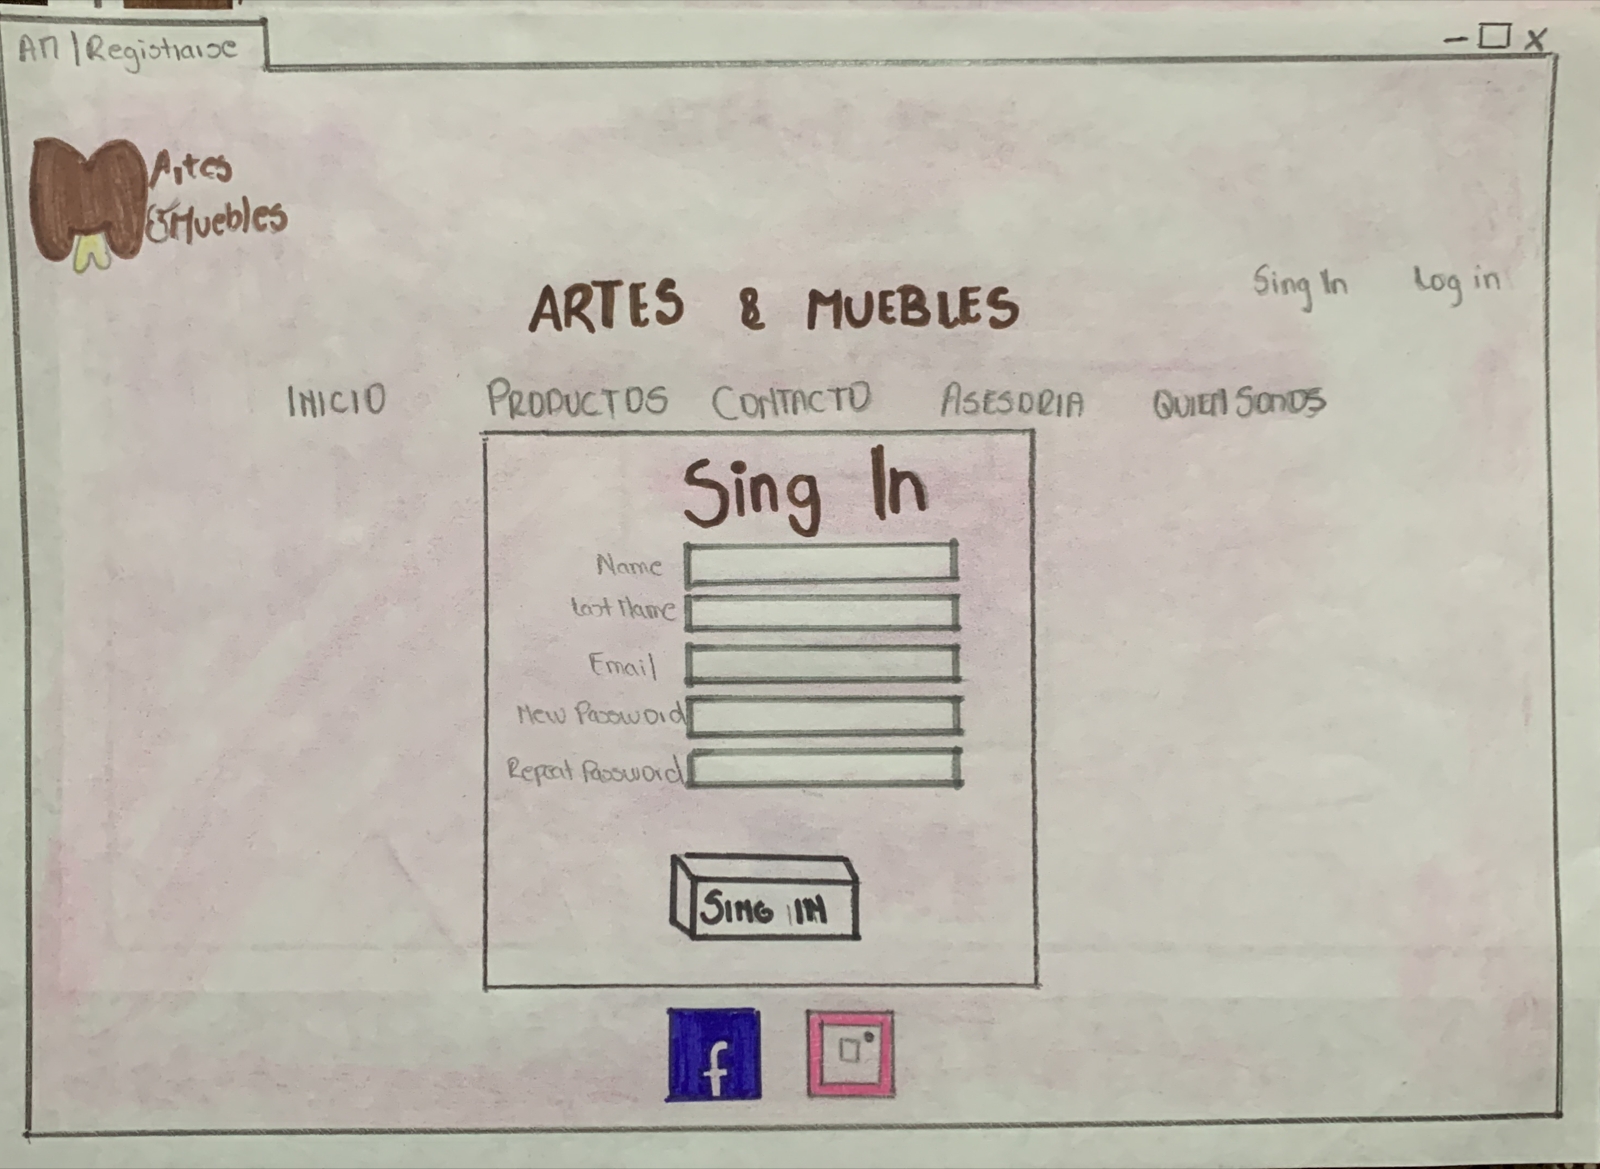 AM | Registrarse
Artes
& Muebles
Sing In Log in
ARTES & MUEBLES
INICIO PRODUCTOS CONTACTO ASESORIA QUIEN SOMOS
Sing In
Name
Last Name
Email
New Password
Repeat Password
SING IN
f